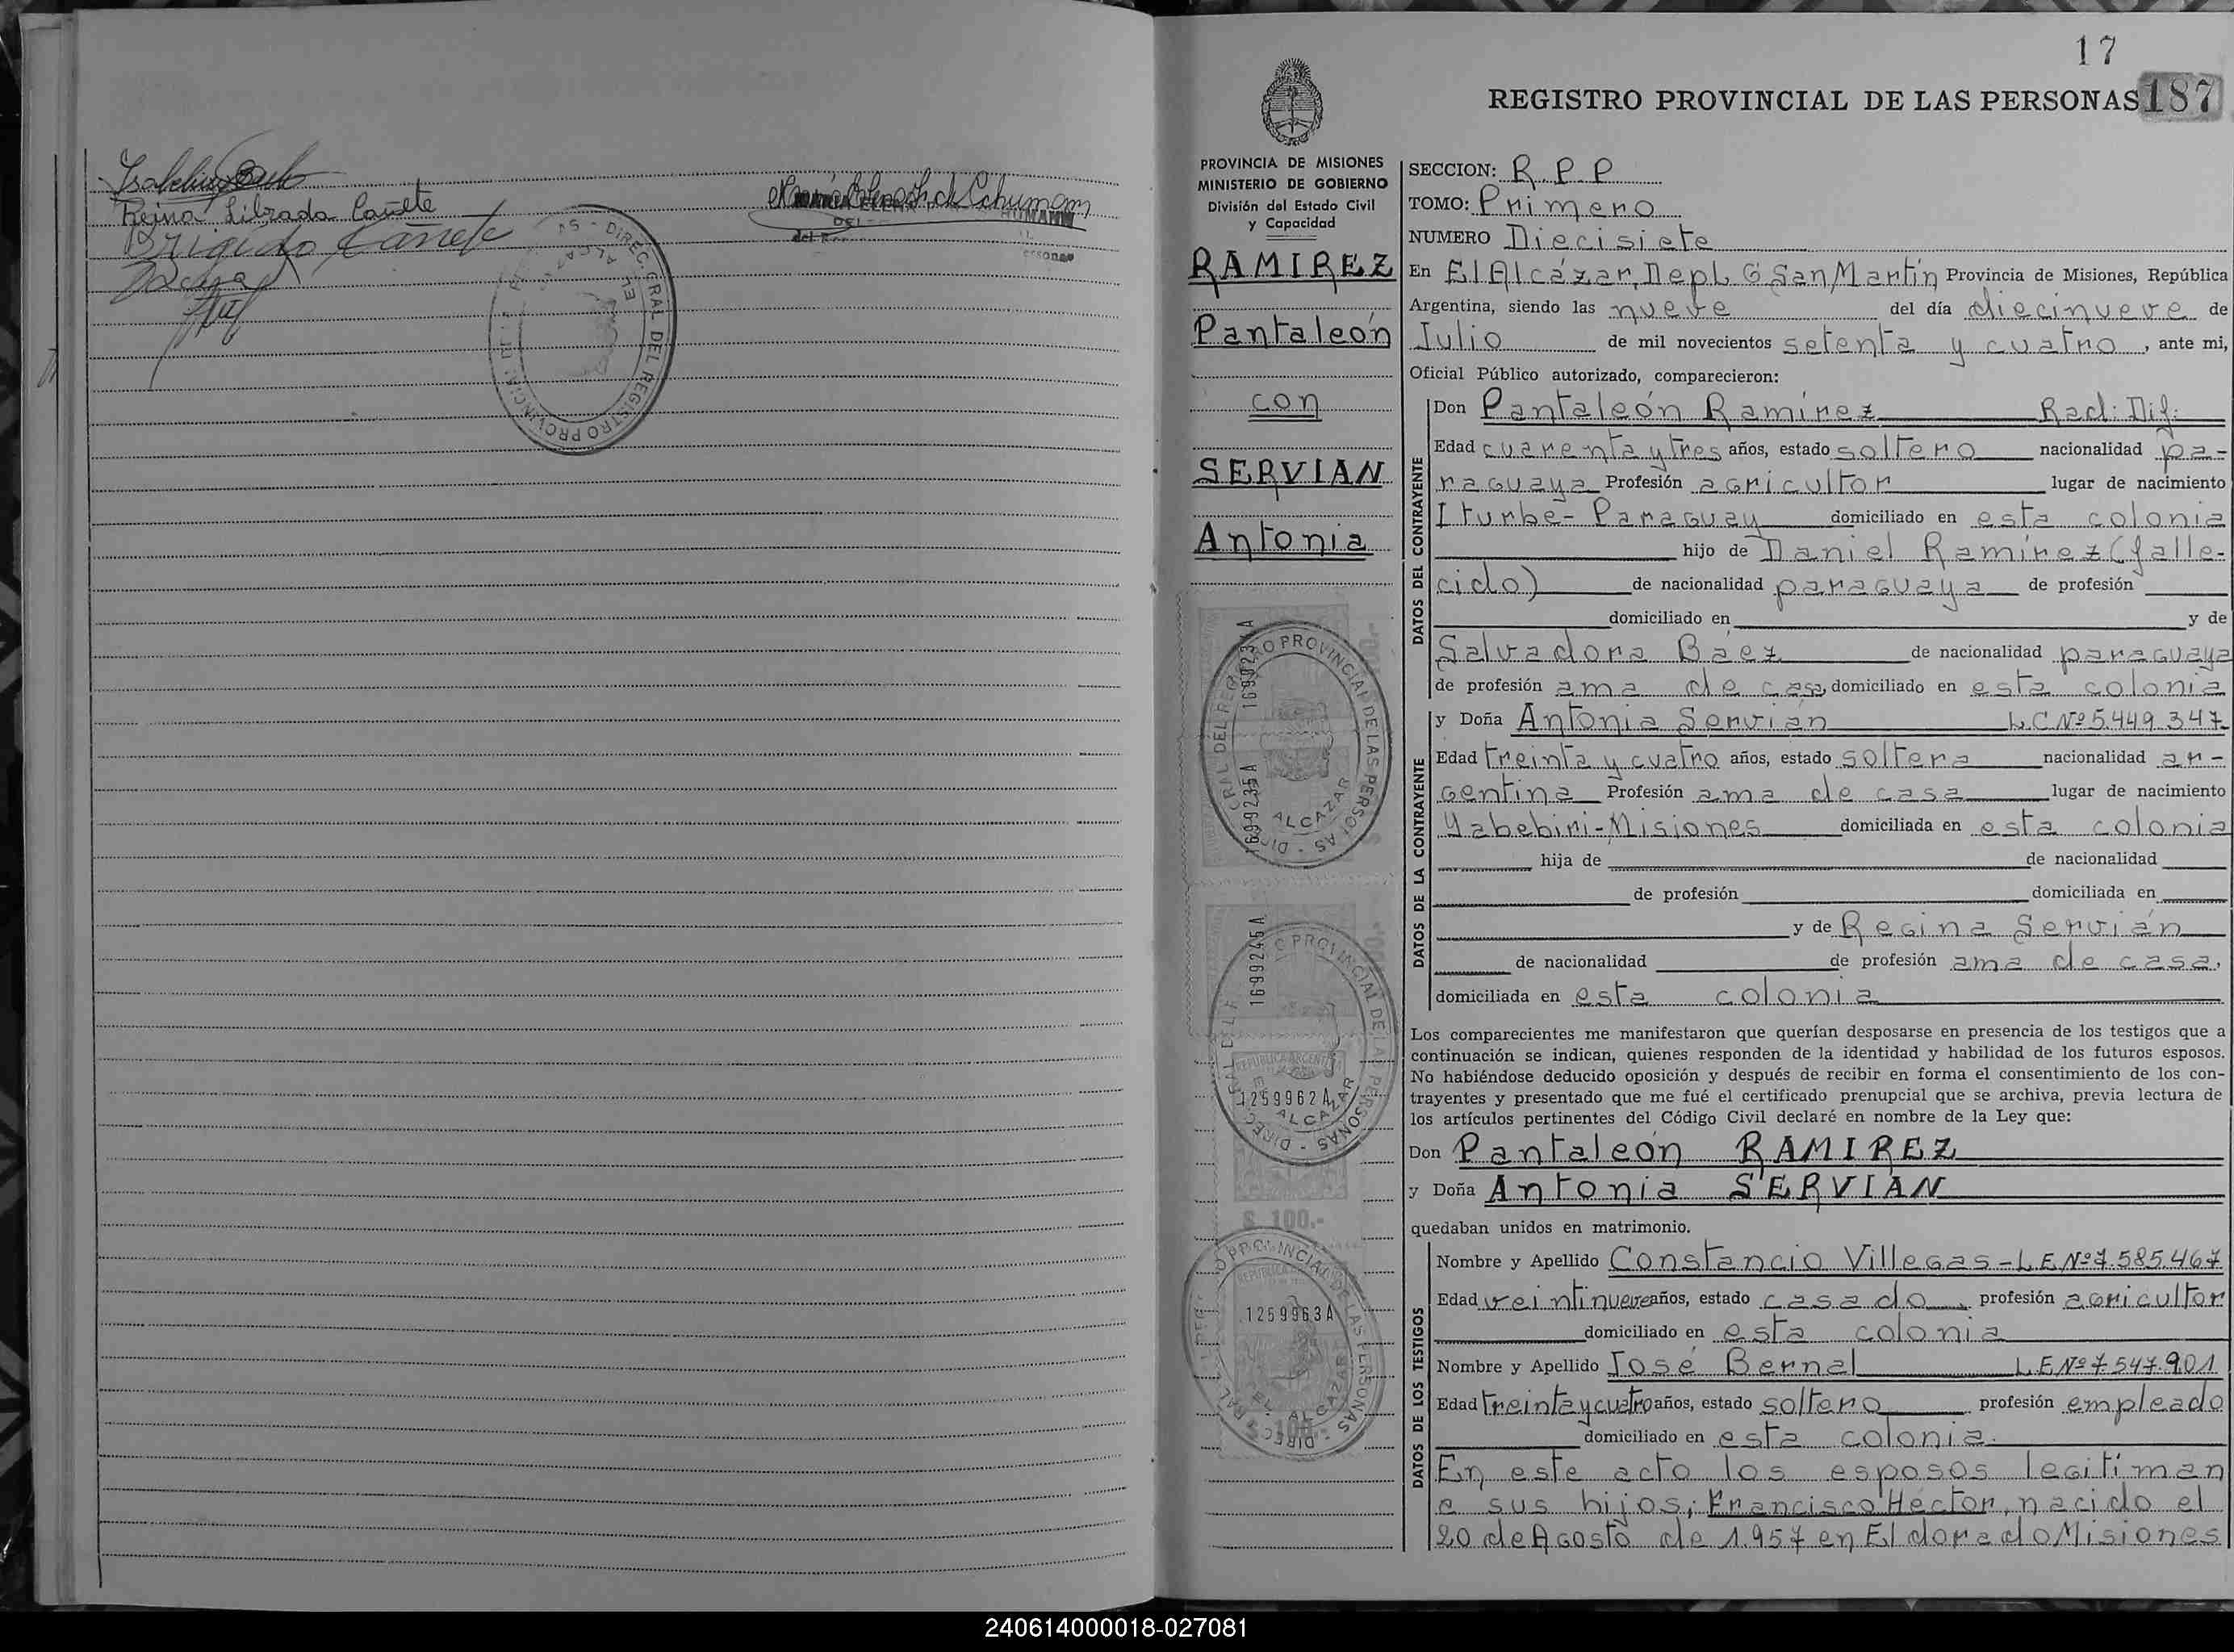 Reina Librada Cañete
Brigido Cañete
17
REGISTRO PROVINCIAL DE LAS PERSONAS 187
PROVINCIA DE MISIONES
MINISTERIO DE GOBIERNO
División del Estado Civil
y Capacidad
RAMIREZ
Pantaleón
con
SERVIAN
Antonia
SECCION: R.P.P
TOMO: Primero
NUMERO Diecisiete
En El Alcázar, Dept. G San Martín Provincia de Misiones, República
Argentina, siendo las nueve del día diecinueve de
Julio de mil novecientos setenta y cuatro, ante mi,
Oficial Público autorizado, comparecieron:
DATOS DEL CONTRAYENTE
Don Pantaleón Ramírez Rad: Dif:
Edad cuarenta y tres años, estado soltero nacionalidad pa-
raguaya Profesión agricultor lugar de nacimiento
Iturbe - Paraguay domiciliado en esta colonia
hijo de Daniel Ramírez (falle-
cido) de nacionalidad paraguaya de profesión
domiciliado en y de
Salvadora Báez de nacionalidad paraguaya
de profesión ama de casa, domiciliado en esta colonia
DATOS DE LA CONTRAYENTE
y Doña Antonia Servián L.C Nº 5.449.347
Edad treinta y cuatro años, estado soltera nacionalidad ar-
gentina Profesión ama de casa lugar de nacimiento
Yabebiri - Misiones domiciliada en esta colonia
hija de de nacionalidad
de profesión domiciliada en
y de Regina Servián
de nacionalidad de profesión ama de casa,
domiciliada en esta colonia
Los comparecientes me manifestaron que querían desposarse en presencia de los testigos que a
continuación se indican, quienes responden de la identidad y habilidad de los futuros esposos.
No habiéndose deducido oposición y después de recibir en forma el consentimiento de los con-
trayentes y presentado que me fué el certificado prenupcial que se archiva, previa lectura de
los artículos pertinentes del Código Civil declaré en nombre de la Ley que:
Don Pantaleón RAMIREZ
y Doña Antonia SERVIAN
quedaban unidos en matrimonio.
DATOS DE LOS TESTIGOS
Nombre y Apellido Constancio Villegas - L.E Nº 7.585.467
Edad veintinueve años, estado casado, profesión agricultor
domiciliado en esta colonia
Nombre y Apellido José Bernal L.E Nº 7.547.901
Edad treinta y cuatro años, estado soltero profesión empleado
domiciliado en esta colonia.
En este acto los esposos legitiman
a sus hijos; Francisco Héctor, nacido el
20 de Agosto de 1.957 en Eldorado Misiones
1699235A
1699245A
1259962A
$ 100.-
1259963A
240614000018-027081